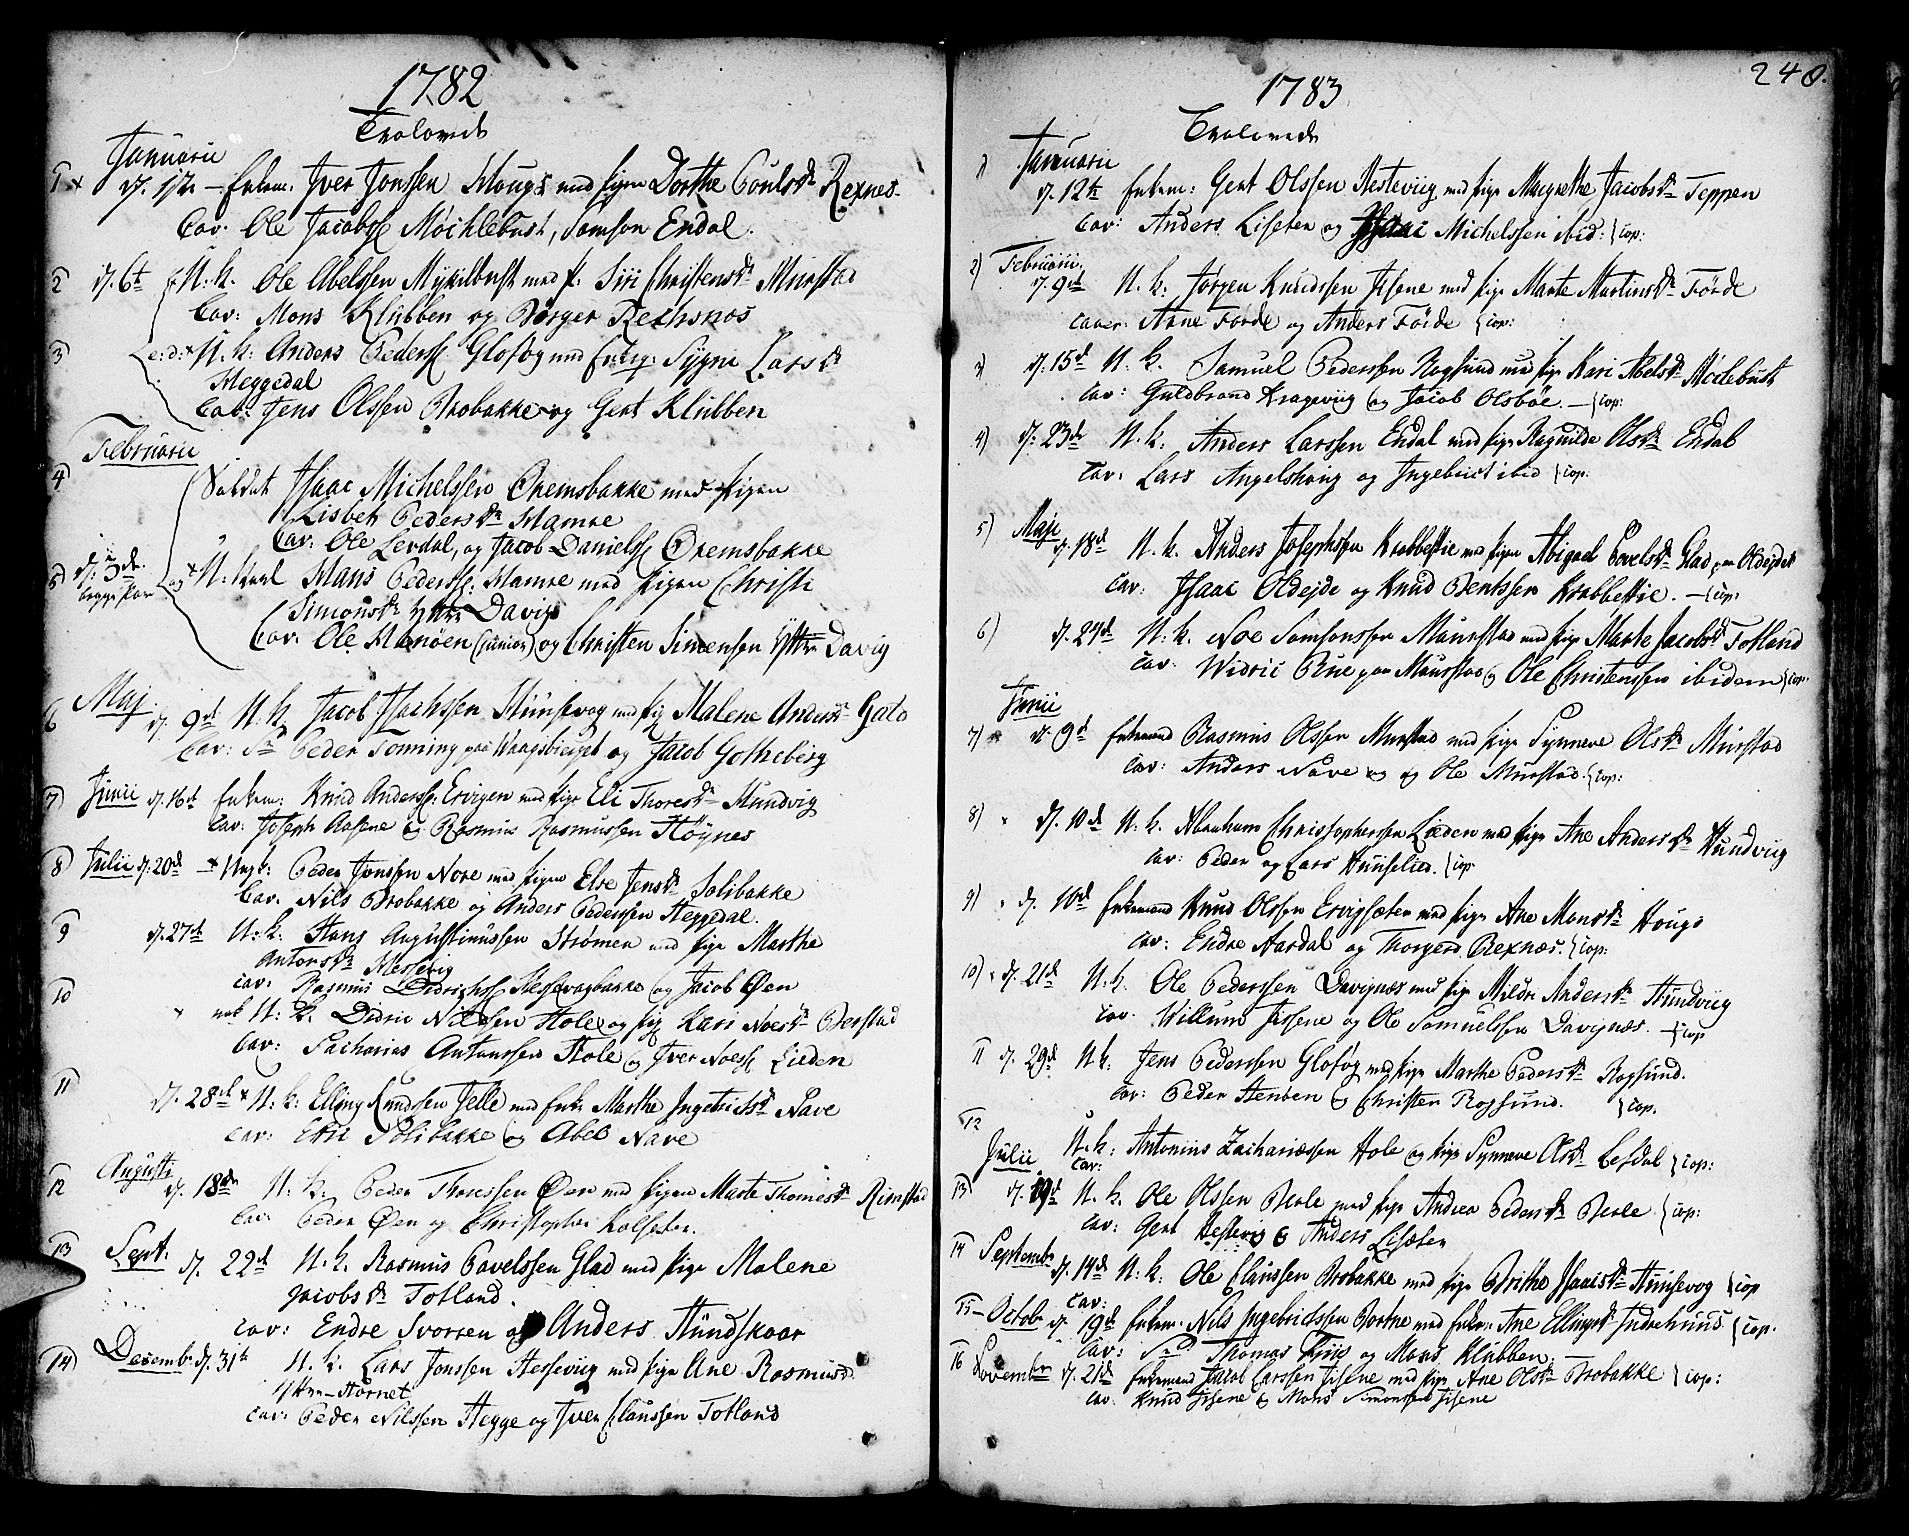 1782
Trolovede
Januarii
1 d. 1ste Enkem. Iver Jonssen Hougs med pigen Dorthe Poulsdr Rexnes.
Cav. Ole Jacobss Möchlebust, Samson Endal.
2 d. 6te U. k. Ole Abelssen Myklebust med p. Siri Christensdr Murstad
Cav: Mons Klubben og Börger Rechsnos
3 e:d: U. k. Anders Pederss Glofog med Enkeq. Sygni Larsdr
Heggedal
Cav: Jens Olssen Brobakke og Gert Klubben
Februarii
4 Soldat Isaac Michelssen Oremsbakke med pigen
Lisbet Pedersdr Hamre
Cav: Ole Levdal, og Jacob Danielss Oremsbakke
5 d. 3die begge par og U. Karl Hans Pederss: Hamre med pigen Christi
Simonsdr Yttre Davig
Cav. Ole Hanöen (junior) og Christen Simensen Yttre Davig
Maj
6 d. 9de U. k. Jacob Isachssen Hunsevog med pig Malene Andersdr Gato
Cav: Sr Peder Tonning paa Waagsbierget og Jacob Gotheberg
7 Junii d. 16de Enkem: Knud Anderss: Ervigen med pige Eli Thoresdr Hundvig
Cav: Joseph Aasene og Rasmus Rasmussen Höynes
8 Julii d. 20de Ungk: Peder Jonssen Nore med pigen Else Jensdr Solibakke
Cav. Nils Brobakke og Anders Pederssen Heggedal.
9 d. 27de U. k. Hans Augustinussen Strømen med pige Marthe
Antonsdr Hessevig
Cav: Rasmus Didrichss Hessevogbakke og Jacob Øen
10 nok U. k. Didric Nilssen Hole og pig Kari Noesdr Berstad
Cav: Zacharias Antonssen Hole og Iver Noess Lieden
11 d. 28de U. k: Elling Knudssen Jelle med Enke Marthe Ingebrictsdr Nave
Cav: Elric Solibakke og Abel Nave
Augusti
12 d. 18de U. k. Peder Thoressen Øen med pigen Marte Thomesdr Rimstad
Cav: Peder Øen og Christopher Kolseter.
13 Sept: d. 22de U. k. Rasmus Pavelssen Glad med pige Malene
Jacobsdr Totland.
Cav: Endre Svorsen og Anders Hundskaar
14 Decembr d. 31te U. k. Lars Jonssen Hessevig med pige Ane Rasmusd.
Yttre-Hornet
Cav: Peder Nilssen Hegge og Iver Clanssen Totland
240.
1783
Trolovede
1) Januarii
d. 12te Enkem: Gert Olssen Hesteviig med pige Margrethe Jacobsdr Teppen
Cav: Anders Liseten og Isaac Michelssen ibid: } cop:
2) Februarii
d. 9de U. k. Jörgen Knudssen Isene med pige Marte Martinsdr Förde
Caver: Arne Förde og Anders Förde } cop:
3) d. 15de U. k. Samuel Pederssen Rogsund med pige Kari Abelsdr Möclebust
Cav: Guldbrand Krageviig og Jacob Olsböe. — } cop:
4) d. 23de U. k. Anders Larssen Endal med pige Ragnilde Olsdr Endal
Cav: Lars Angelshoug og Ingebrict ibid } cop.
5) Maji d. 18de U. k. Anders Josephssen Krabbestie med pigen Abigael Povelsdr Glad paa Oldejdet
Cav: Isaac Oldejde og Knud Bentssen Krabbestie. — } cop:
6) d. 27de U. k. Noe Samsonssen Mürstad med pige Marte Jacobsdr Totland
Cav: Widric Brue paa Mürstad og Ole Christenssen ibidem } cop:
Junii
7) d. 9de Enkemand Rasmus Olssen Murstad med pige Synneve Olsdr Murstad
Cav: Anders Nave og Ole Murstad. } cop:
8) d. 10de U. k. Abraham Christophersen Lieden med pige Ane Andersdr Hundviig
Cav: Peder og Lars Hunselied. } cop
9) d. 10de Enkemand Knud Olssen Ervigsæter med pige Ane Monsdr Hougs
Cav: Endre Aardal og Thorgerd Rexnæs. } cop:
10) d. 21de U. k. Ole Pederssen Davignæs med pige Mildri Andersdr Hundviig
Cav. Willum Issene og Ole Samuelssen Davignæs. — } cop
11 d. 29de U. k. Jens Pederssen Glofog med pige Marthe Pedersdr Rogsund.
Cav: Peder Henden og Christen Rogsund. } cop.
12 U. k: Antonius Zachariæssen Hole og pige Synneve Olsdr Lefdal } cop:
Julii Cav:
13 d. 19de U. k. Ole Olssen Berle med pige Andrea Pedersdr Berle } cop:
Cav: Gert Hestevig & Anders Liseten
14 Septembr d. 14de U. k: Ole Clanssen Brobakke med pige Brithe Isaacsdr Hunsevog } cop
Cav:
15 Octobr d. 19de Enkem: Nils Ingebrictssen Bortne med Enke: Ane Ellingsdr Indrehuus } cop.
Cav: Sr Thomas Friis og Mons Klubben
16 Novembr d. 21de Enkemand Jacob Larssen Isene med pige Ane Olsdr Brobakke } cop:
Cav. Knud Isene & Mons Simonssen Isene